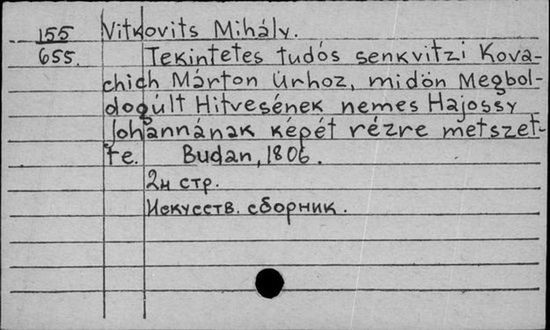 155 Vitkovits Mihály.
655. Tekintetes tudós senkvitzi Kova-
chich Márton Úrhoz, midön Megbol-
dogúlt Hitvesének nemes Hajossy
Johannának képét rézre metszet-
te. Budan, 1806.
2н стр.
Искусств. сборник.